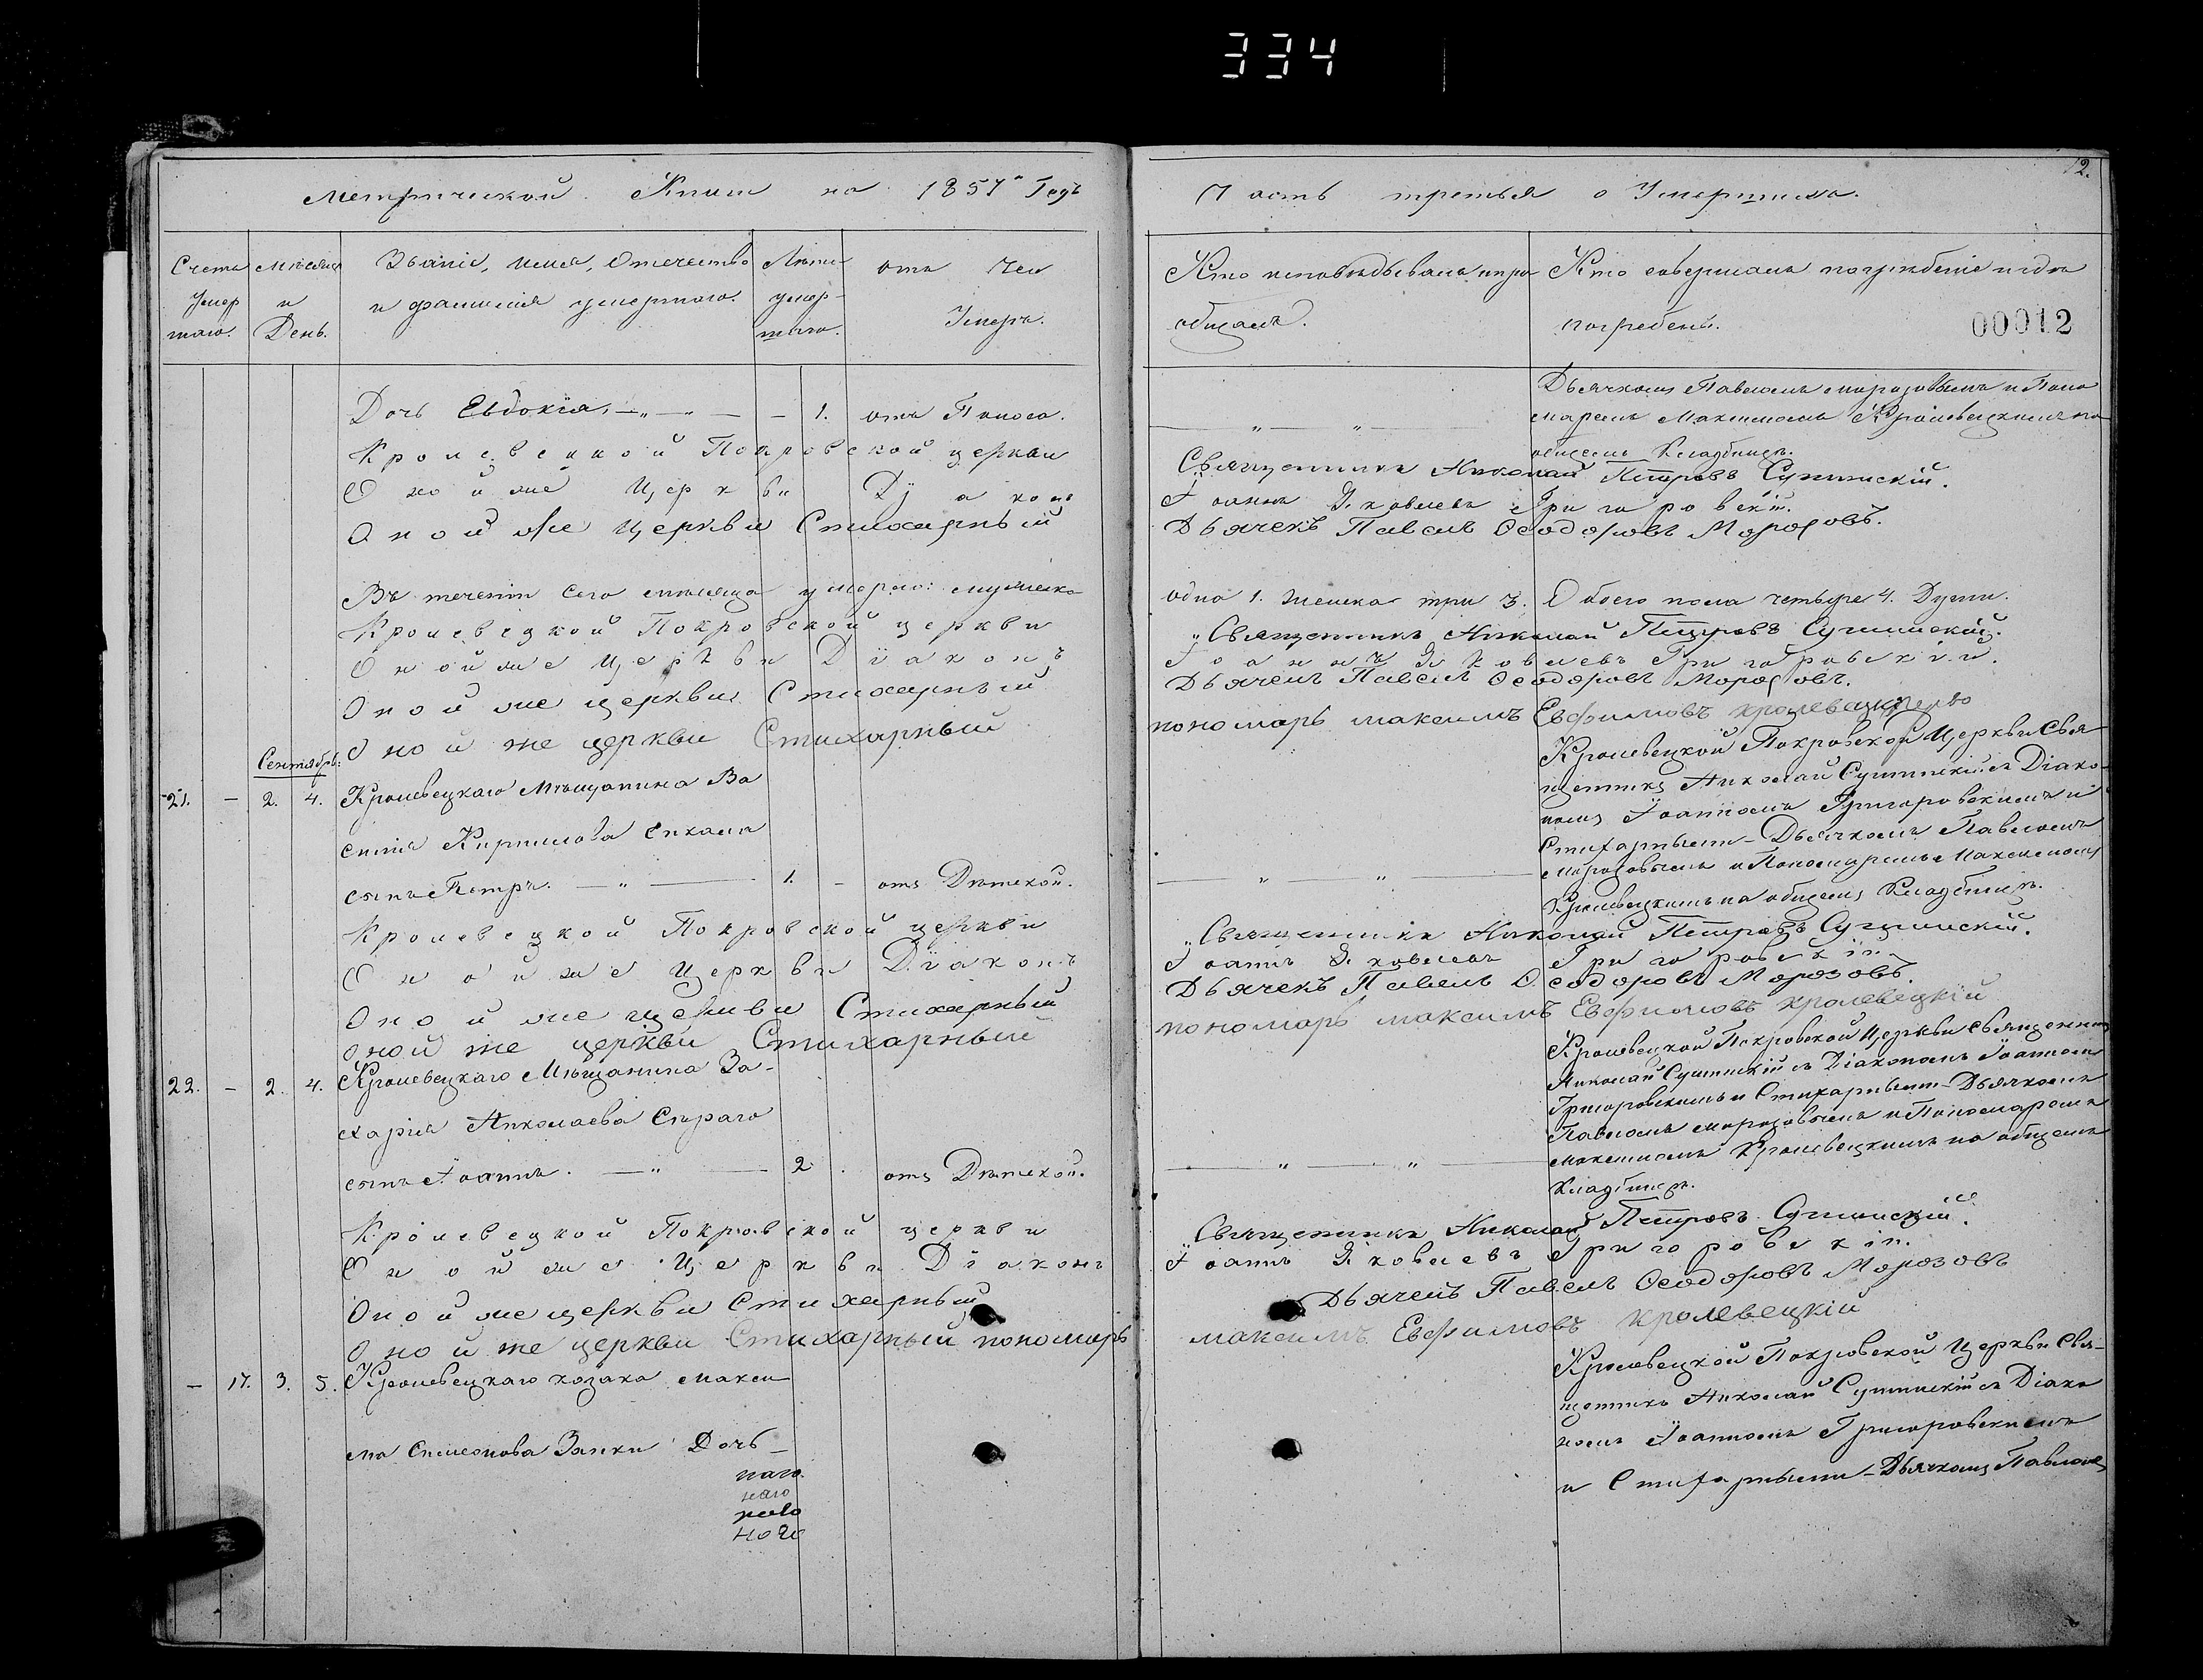 334
12.
Метрической Книги на 1857й Годъ
Часть третья о Умершихъ.
Счетъ Умер шаго.
Мѣсяцъ и День.
Званіе, Имя, Отечество и фамилія умершаго.
Лѣта умер- шаго.
отъ чего Умеръ.
Кто исповѣдывалъ и прі общалъ.
Кто совершалъ погребеніе и гдѣ погребены.
00012
Дочь Евдокія, — „ — — 1. отъ Поноса.
Дьячкомъ Павломъ Морозовымъ и Поно
маремъ Максимомъ Кролевецкимъ на
общемъ Кладбищѣ.
Кролевецкой Покровской церкви Священникъ Николай Петровъ
Оной же Церкви Діаконъ Іоаннъ Яковлевъ Григоровскій.
Оной же Церкви Стихарный Дьячекъ Павелъ Ѳеодоровъ Морозовъ.
Въ теченіи сего мѣсяца умерло: мужеска одна 1. женска три 3. Обоего пола четыре 4. Души.
Кролевецкой Покровской церкви „Священникъ Николай Петровъ
Оной же Церкви Діаконъ Іоаннъ Яковлевъ Григоровскій.
Оной же церкви Стихарный Дьячекъ Павелъ Ѳеодоровъ Морозовъ.
Оной же церкви Стихарный пономарь максимъ Евфимовъ
Сентябрь:
21. — 2. 4. Кролевецкаго Мѣщанина Ва
силія Кирилова
сынъ Петръ. — „ — 1. — отъ Дѣтской.
— „ — „ —
Кролевецкой Покровской Церкви Свя-
щенникъ Николай
номъ Іоанномъ Григоровскимъ и
Стихарными- Дьячкомъ Павломъ
Морозовымъ и Пономаремъ Максимомъ
Кролевецкимъ на общемъ Кладбищѣ.
Кролевецкой Покровской церкви „Священникъ Николай Петровъ
Оной же Церкви Діаконъ Іоаннъ Яковлевъ Григоровскій.
Оной же церкви Стихарный Дьячекъ Павелъ Ѳеодоровъ Морозовъ.
Оной же церкви Стихарный пономарь максимъ Евфимовъ кролевецкій
22. — 2. 4. Кролевецкаго Мѣщанина За-
харія Николаева
сынъ Іоаннъ. — „ — 2 . отъ Дѣтской.
— „ — „ —
Кролевецкой Покровской Церкви Священникъ
Николай
Григоровскимъ и Стихарными- Дьячкомъ
Павломъ Морозовымъ и Пономаремъ
Максимомъ Кролевецкимъ на общемъ
Кладбищѣ.
Кролевецкой Покровской церкви „Священникъ Николай Петровъ
Оной же Церкви Діаконъ Іоаннъ Яковлевъ Григоровскій.
Оной же церкви Стихарный Дьячекъ Павелъ Ѳеодоровъ Морозовъ
Оной же церкви Стихарный пономарь максимъ Евфимовъ кролевецкій
— 17. 3. 5. Кролевецкаго козака Макси-
ма Симеонова Заики Дочь —
Кролевецкой Покровской Церкви Свя-
щенникъ Николай
номъ Іоанномъ Григоровскимъ
и Стихарными- Дьячкомъ Павломъ
наго.
наго
наго
ного